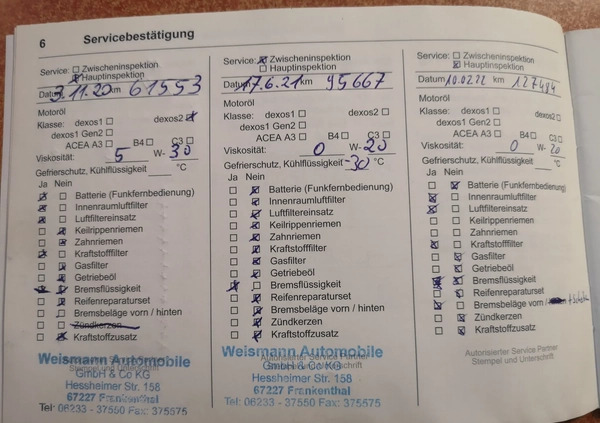 6 Servicebestätigung
Service: Zwischeninspektion
Hauptinspektion
Datum 3.11.20 km 61553
Motoröl
Klasse: dexos1 dexos2
dexos1 Gen2
ACEA A3 B4 C3
Viskosität: 5 W- 30
Gefrierschutz, Kühlflüssigkeit °C
Ja Nein
Batterie (Funkfernbedienung)
Innenraumluftfilter
Luftfiltereinsatz
Keilrippenriemen
Zahnriemen
Kraftstofffilter
Gasfilter
Getriebeöl
Bremsflüssigkeit
Reifenreparaturset
Bremsbeläge vorn / hinten
Zündkerzen
Kraftstoffzusatz
Weismann Automobile
GmbH & Co KG
Stempel und Unterschrift
Hessheimer Str. 158
67227 Frankenthal
Tel: 06233 - 37550 Fax: 375575
Service: Zwischeninspektion
Hauptinspektion
Datum 17.6.21 km 95667
Motoröl
Klasse: dexos1 dexos2
dexos1 Gen2
ACEA A3 B4 C3
Viskosität: 0 W- 20
Gefrierschutz, Kühlflüssigkeit -30 °C
Ja Nein
Batterie (Funkfernbedienung)
Innenraumluftfilter
Luftfiltereinsatz
Keilrippenriemen
Zahnriemen
Kraftstofffilter
Gasfilter
Getriebeöl
Bremsflüssigkeit
Reifenreparaturset
Bremsbeläge vorn / hinten
Zündkerzen
Kraftstoffzusatz
Weismann Automobile
Autorisierter Service Partner
GmbH & Co KG
Hessheimer Str. 158
67227 Frankenthal
Tel: 06233 - 37550 Fax: 375575
Service: Zwischeninspektion
Hauptinspektion
Datum 10.02.22 km 127484
Motoröl
Klasse: dexos1 dexos2
dexos1 Gen2
ACEA A3 B4 C3
Viskosität: 0 W- 20
Gefrierschutz, Kühlflüssigkeit °C
Ja Nein
Batterie (Funkfernbedienung)
Innenraumluftfilter
Luftfiltereinsatz
Keilrippenriemen
Zahnriemen
Kraftstofffilter
Gasfilter
Getriebeöl
Bremsflüssigkeit
Reifenreparaturset
Bremsbeläge vorn /
Zündkerzen
Kraftstoffzusatz
Autorisierter Service Partner
Stempel und Unterschrift